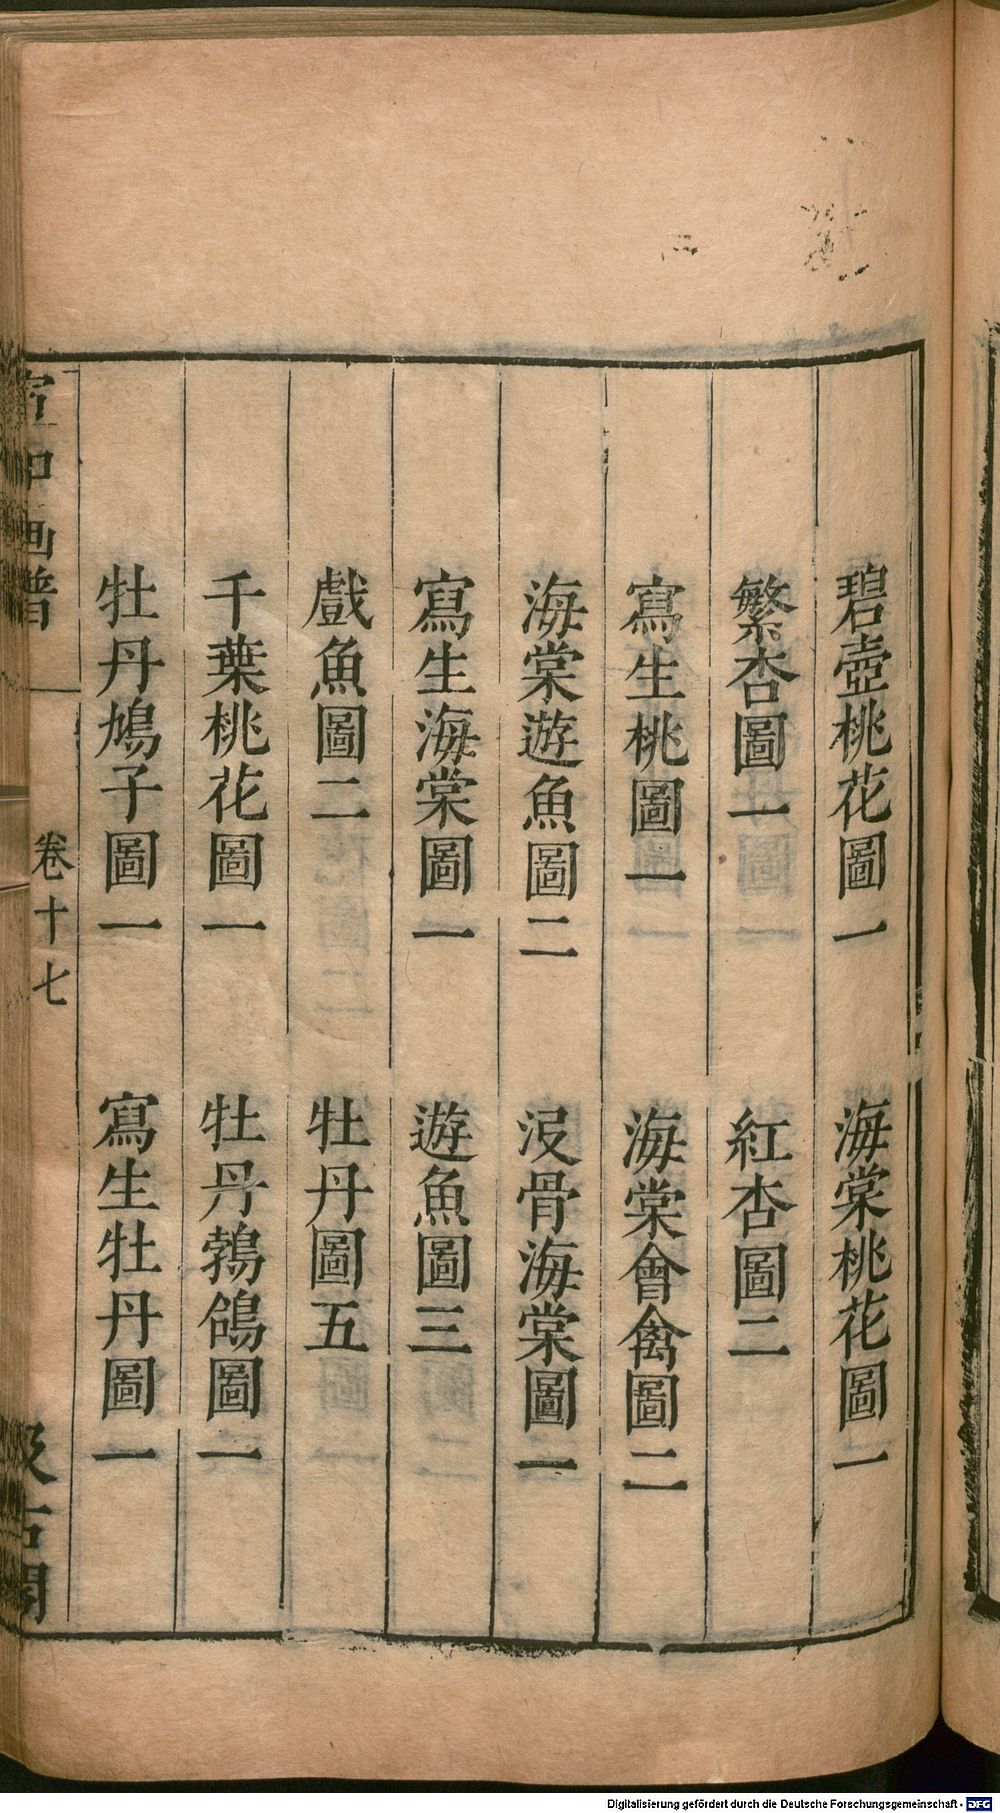 碧壺桃花圖一　海棠桃花圖一
繁杏圖一　紅杏圖二
寫生桃圖一　海棠會禽圖二
海棠遊魚圖二　沒骨海棠圖一
寫生海棠圖一　遊魚圖三
戲魚圖二　牡丹圖五
千葉桃花圖一　牡丹鵓鴿圖一
牡丹鳩子圖一　寫生牡丹圖一
宣和画譜　卷十七　汲古閣
Digitalisierung gefördert durch die Deutsche Forschungsgemeinschaft - DFG